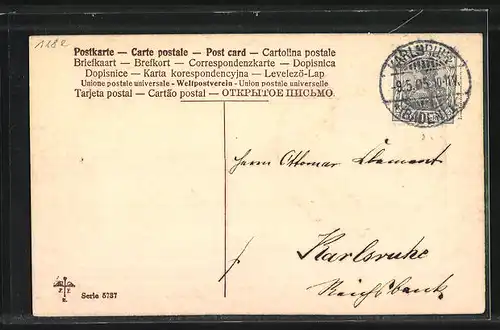 1182
Postkarte — Carte postale — Post card — Cartolina postale
Briefkaart — Brefkort — Correspondenzkarte — Dopisnica
Dopisnice — Karta korespondencyjna — Levelező-Lap
Unione postale universale - Weltpostverein - Union postale universelle
Tarjeta postal — Cartão postal — ОТКРЫТОЕ ПИСЬМО.
KARLSRUHE
9.5.05. 10-11V.
(BADEN)
Herrn Ottomar
Karlsruhe
Reichsbank
Serie 5737